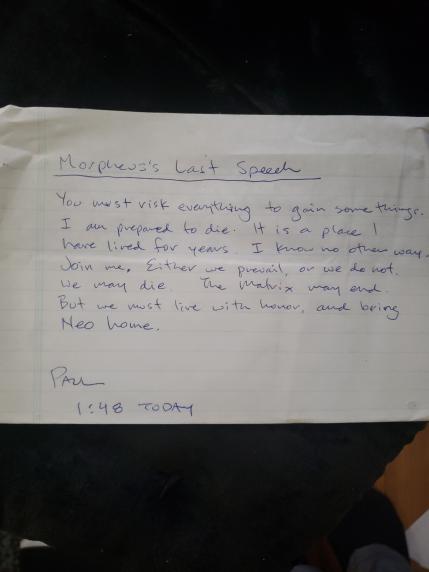 Morpheus's Last Speech
You must risk everything to gain some things.
I am prepared to die. It is a place I
have lived for years. I know no other way.
Join me. Either we prevail, or we do not.
We may die. The Matrix may end.
But we must live with honor, and bring
Neo home.
Paul
1:48 TODAY